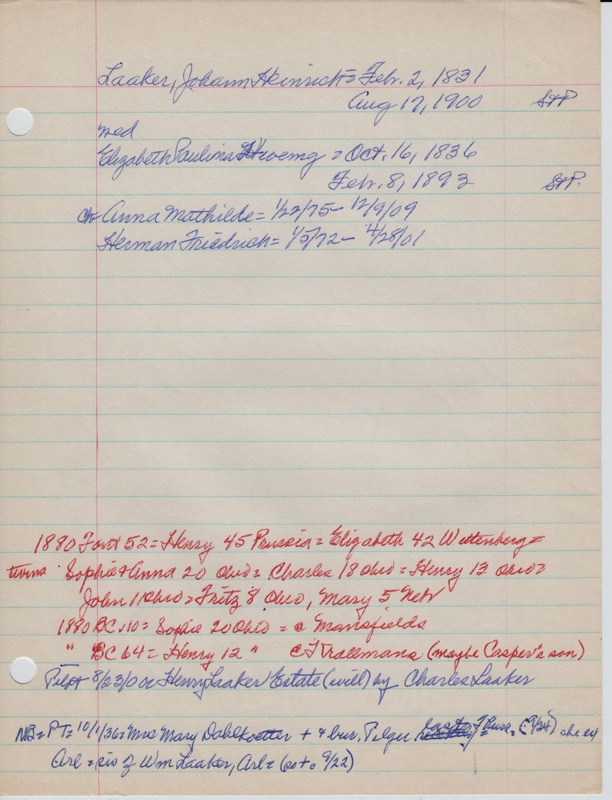 Laaker, Johann Heinrich = Feb. 2, 1831
Aug 17, 1900 StP
md
Elizabeth Paulina = Oct. 16, 1836
Feb. 8, 1893 StP.
ch Anna Mathilde = 1/22/75 - 12/9/09
Herman Friedrich = 1/5/72 - 4/28/01
1880 52 = Henry 45 Prussia = Elizabeth 42 =
twins Sophie & Anna 20 Ohio = Charles 18 Ohio = Henry 13 Ohio =
John 11 Ohio = Fritz 8 Ohio, Mary 5 Nebr
1880 BC = Sophie 20 Ohio = c Mansfields
" BC 64 = Henry 12 " c F (maybe Casper's son)
8/23/0 Henry Laaker Estate (will) by Charles Laaker
NB = PT = 10/1/36 = Mrs Mary + bur. Pilger (= 9/34)
Arl = sis of Wm Laaker, Arl =